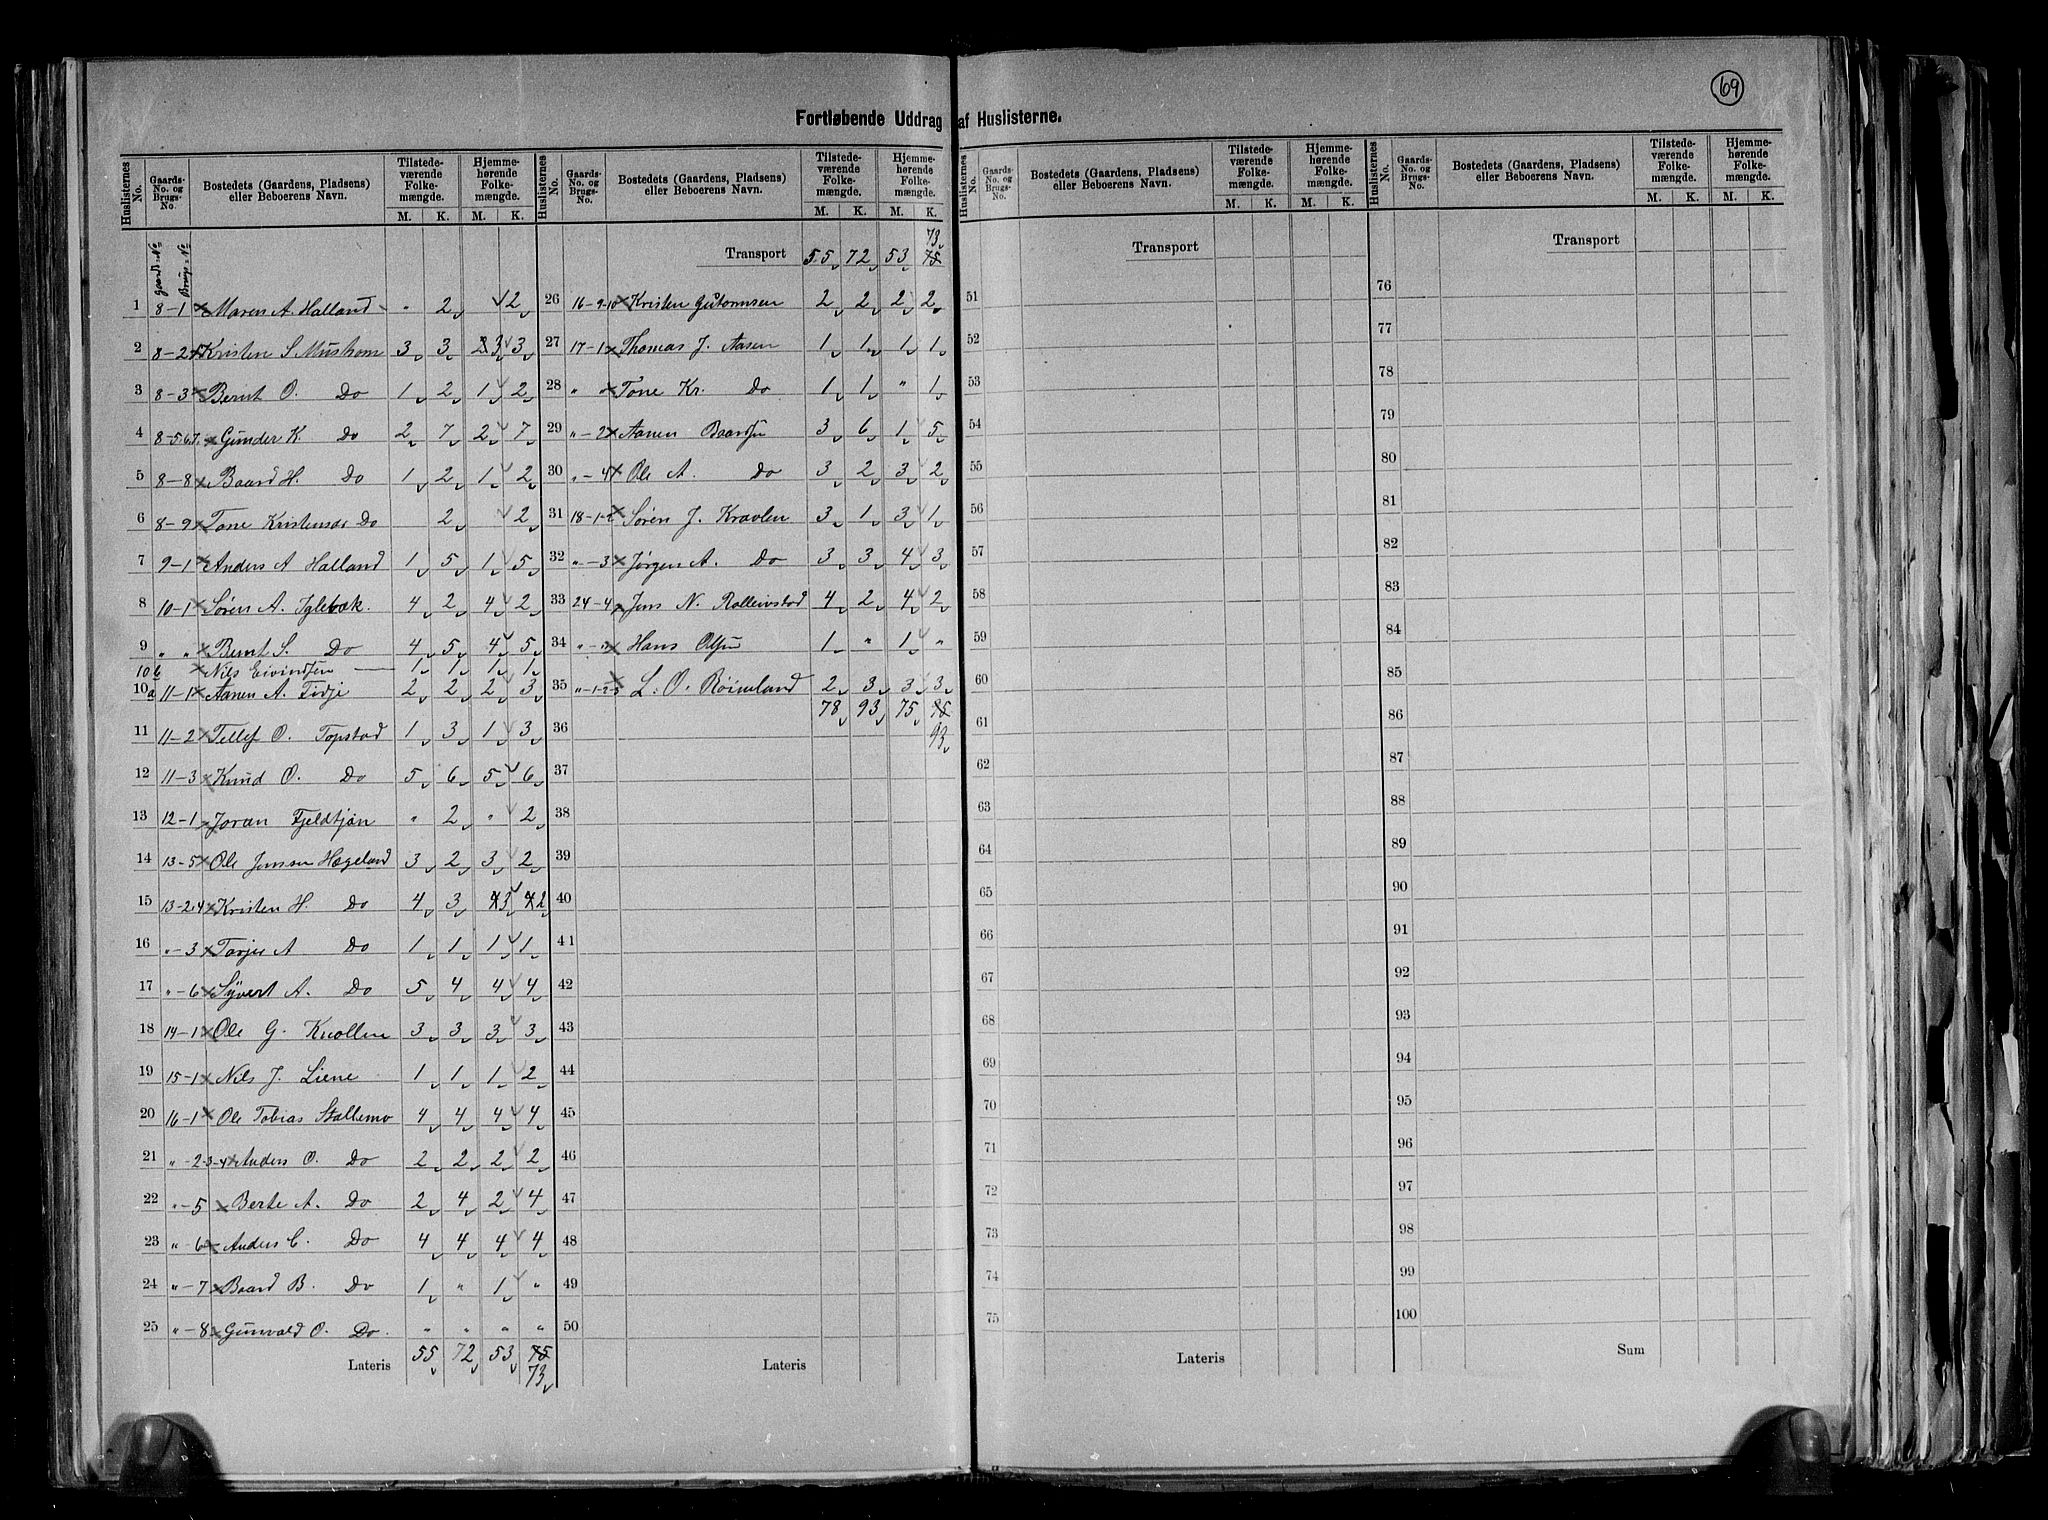 69
Fortløbende Uddrag af Huslisterne.
Huslisternes No. Gaards-No. og Brugs-No. Bostedets (Gaardens, Pladsens) eller Beboerens Navn. Tilstedeværende Folkemængde. M. K. Hjemmehørende Folkemængde. M. K.
Gaards-No. Brugs-No.
1 8-1 Maren A. Halland " 2 2
2 8-2 Kristen S. 3 3 3 3
3 8-3 Bernt O. Do 1 2 1 2
4 8-5.6.7. Gunder K. Do 2 7 2 7
5 8-8 Baard H. Do 1 2 1 2
6 8-9 Tone Kristensdr Do 2 2
7 9-1 Anders A Halland 1 5 1 5
8 10-1 Søren A. Iglebæk. 4 2 4 2
9 " " Bernt S. Do 4 5 4 5
10b Nils Eivindsen 1 1 1 1
10a 11-1 Aanen A. Fidje 2 2 2 3
11 11-2 Tellef O. Topstad 1 3 1 3
12 11-3 Knud O. Do 5 6 5 6
13 12-1 Joran Fjeldtjøn " 2 " 2
14 13-5 Ole Jensen Hægeland 3 2 3 2
15 13-2.4 Kristen H. Do 4 3 3 2
16 "-3 Torjus A Do 1 1 1 1
17 "-6 Syvert A. Do 5 4 4 4
18 14-1 Ole G. Knollen 3 3 3 3
19 15-1 Nils J. Liene 1 1 1 2
20 16-1 Ole Tobias Stallemo 4 4 4 4
21 "-2-3-4 Anders O. Do 2 2 2 2
22 "-5 Berte A. Do 2 4 2 4
23 "-6 Anders C. Do 4 4 4 4
24 "-7 Baard B. Do 1 " 1 "
25 "-8 Gunvald O. Do " " " "
Lateris 55 72 53 75
73
Huslisternes No. Gaards-No. og Brugs-No. Bostedets (Gaardens, Pladsens) eller Beboerens Navn. Tilstedeværende Folkemængde. M. K. Hjemmehørende Folkemængde. M. K.
73
Transport 55 72 53 75
26 16-9-10 Kristen Gutormsen 2 2 2 2
27 17-1 Thomas J. Aasen 1 1 1 1
28 " " Tone Kr. Do 1 1 " 1
29 "-2 Aanen Baardsen 3 6 1 5
30 "-4 Ole A. Do 3 2 3 2
31 18-1-2 Søren J. Kravlen 3 1 3 1
32 "-3 Jørgen A. Do 3 3 4 3
33 24-4 Jens N. 4 2 4 2
34 "-" Hans Olsen 1 " 1 "
35 "-1-2-3 L. O. Røinsland 2 3 3 3
78 93 75 75
36 93
37
38
39
40
41
42
43
44
45
46
47
48
49
50
Lateris
Huslisternes No. Gaards-No. og Brugs-No. Bostedets (Gaardens, Pladsens) eller Beboerens Navn. Tilstedeværende Folkemængde. M. K. Hjemmehørende Folkemængde. M. K.
Transport
51
52
53
54
55
56
57
58
59
60
61
62
63
64
65
66
67
68
69
70
71
72
73
74
75
Lateris
Huslisternes No. Gaards-No. og Brugs-No. Bostedets (Gaardens, Pladsens) eller Beboerens Navn. Tilstedeværende Folkemængde. M. K. Hjemmehørende Folkemængde. M. K.
Transport
76
77
78
79
80
81
82
83
84
85
86
87
88
89
90
91
92
93
94
95
96
97
98
99
100
Sum